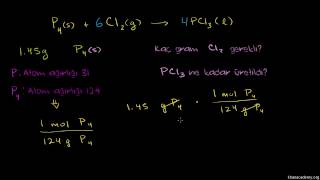 P₄(s) + 6Cl₂(g) → 4PCl₃(l)
1.45g P₄(s) Kaç gram Cl₂ gerekli?
P: Atom ağırlığı 31 PCl₃ ne kadar üretildi?
P₄: Atom ağırlığı 124
1.45 g P₄ · 1 mol P₄ / 124 g P₄
1 mol P₄ / 124 g P₄
khanacademy.org